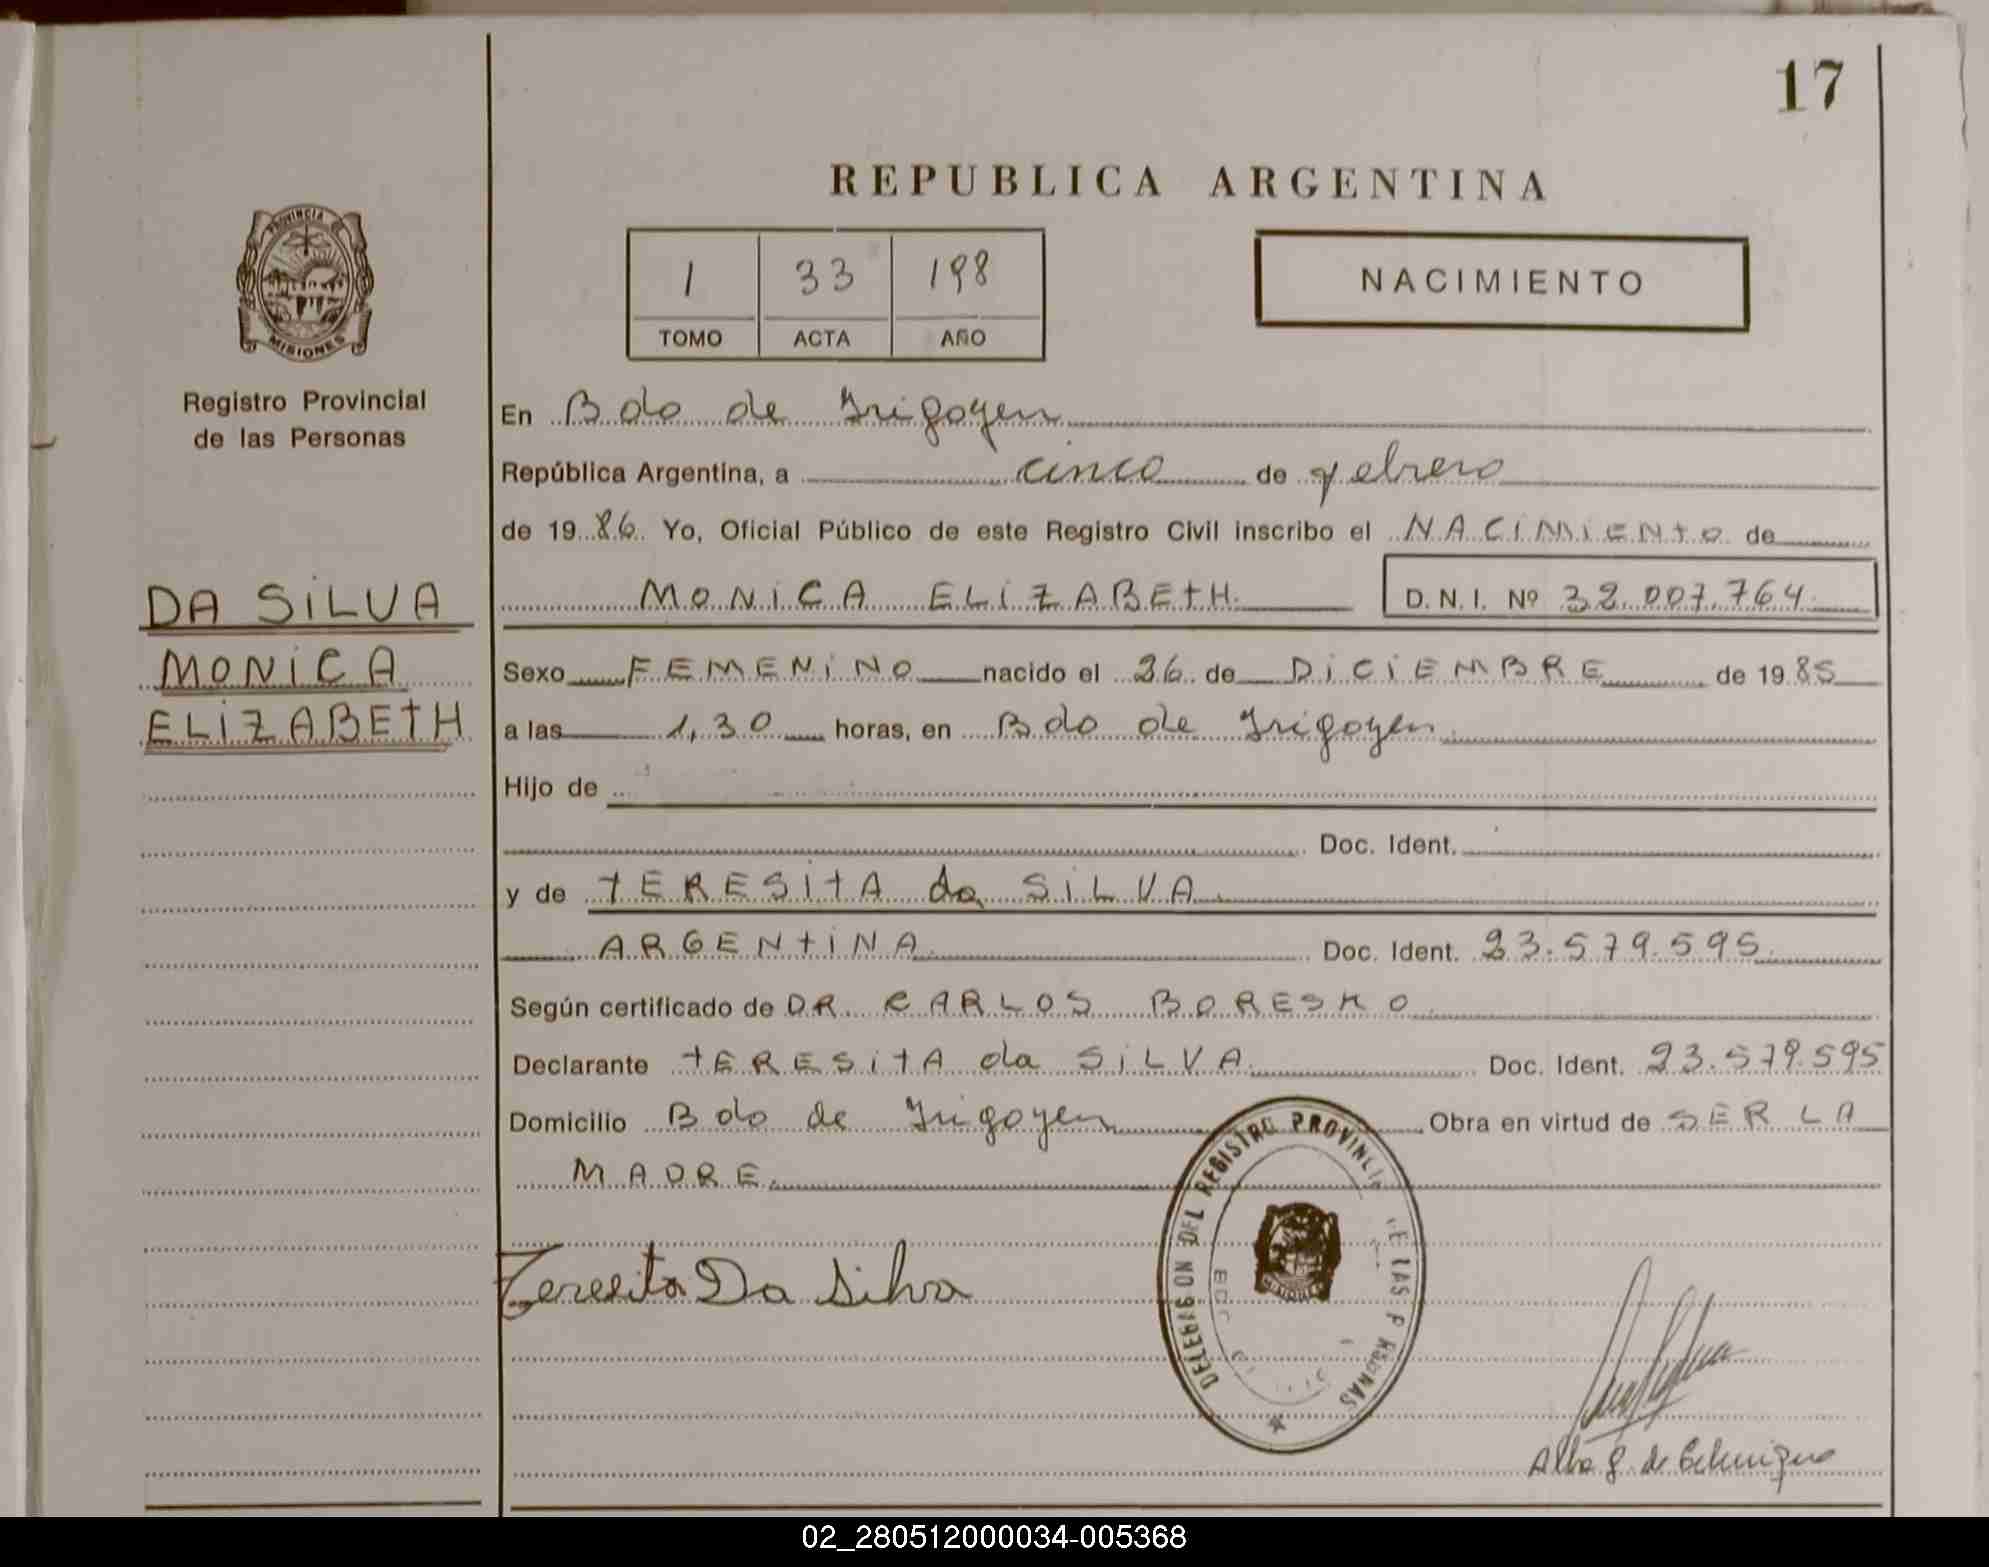 17
REPUBLICA ARGENTINA
PROVINCIA DE
MISIONES
Registro Provincial
de las Personas
1 33 198
TOMO ACTA AÑO
NACIMIENTO
En Bdo de Irigoyen
República Argentina, a cinco de febrero
de 1986 Yo, Oficial Público de este Registro Civil inscribo el NACIMIENTO de
DA SILVA
MONICA
ELIZABETH
MONICA ELIZABETH D.N.I. Nº 32.007.764
Sexo FEMENINO nacido el 26 de DICIEMBRE de 1985
a las 1,30 horas, en Bdo de Irigoyen
Hijo de
Doc. Ident.
y de TERESITA da SILVA
ARGENTINA Doc. Ident. 23.579.595
Según certificado de DR. CARLOS BORESKO
Declarante TERESITA da SILVA Doc. Ident. 23.579.595
Domicilio Bdo de Irigoyen Obra en virtud de SER LA
MADRE
DELEGISION DEL REGISTRO PROVINCI
Teresita Da Silva
Alba G. de
02_280512000034-005368